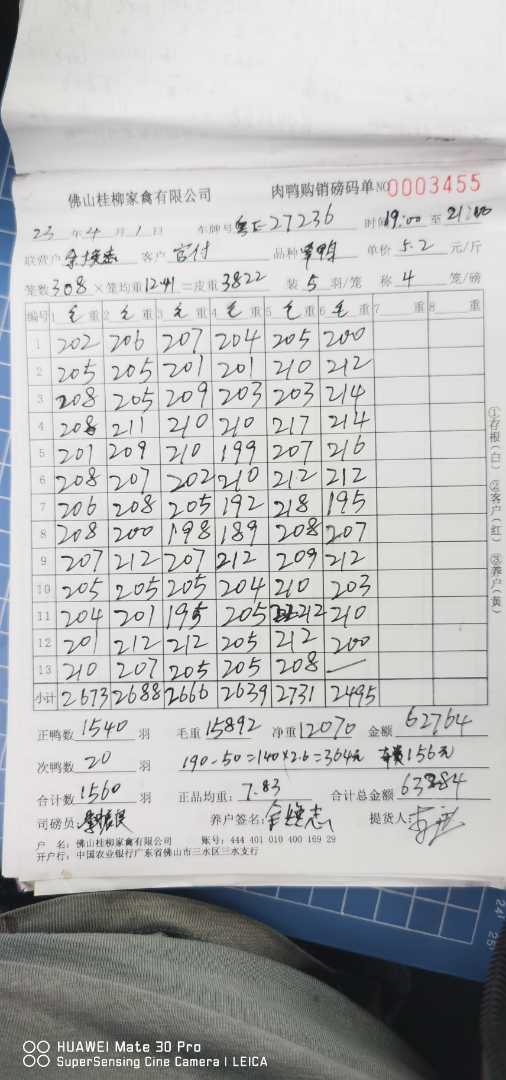 佛山桂柳家禽有限公司 肉鸭购销磅码单 NO 0003455
23 年 4 月 1 日 车牌号 粤E-27236 时间 19:00 至 21:00
联营户 客户 官付 品种 单价 5.2 元/斤
笼数 308 × 笼均重 12.41 = 皮重 3822 装 5 羽/笼 称 4 笼/磅
编号 1 毛 重 2 毛 重 3 毛 重 4 毛 重 5 毛 重 6 毛 重 7 重 8 重
1 202 206 207 204 205 200
2 205 205 201 201 210 212
3 208 205 209 203 203 214
4 208 211 210 210 217 214
5 201 209 210 199 207 216
6 208 207 202 210 212 212
7 206 208 205 192 218 195
8 208 200 198 189 208 207
9 207 212 207 212 209 212
10 205 205 205 204 210 203
11 204 201 195 205 212 210
12 201 212 212 205 212 200
13 210 207 205 205 208 —
小计 2673 2688 2666 2639 2731 2495
①存根(白) ②客户(红) ③养户(黄)
正鸭数 1540 羽 毛重 15892 净重 12070 金额 62764
次鸭数 20 羽 190-50=140×2.6=364元 156元
合计数 1560 羽 正品均重: 7.83 合计总金额 63284
司磅员: 养户签名: 提货人:
户 名: 佛山桂柳家禽有限公司 账号: 444 401 010 400 169 29
开户行: 中国农业银行广东省佛山市三水区三水支行
24
25
HUAWEI Mate 30 Pro
SuperSensing Cine Camera | LEICA